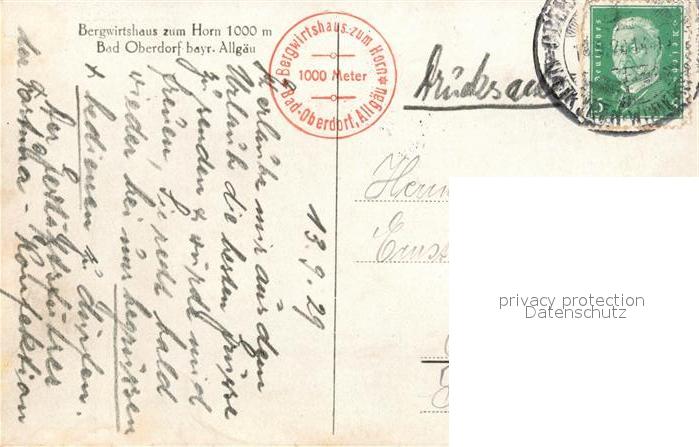 Bergwirtshaus zum Horn 1000 m
Bad Oberdorf bayr. Allgäu
Bergwirtshaus zum Horn
1000 Meter
Bad-Oberdorf, Allgäu
Deutsches Reich
5
Drucksache
13.9.29
erlaube mir aus dem
Urlaub die besten Grüsse
zu senden & würde mich
freuen, Sie recht bald
wieder bei uns begrüssen
& bedienen zu dürfen.
Der
der Konfektion
Herrn
Ernst
privacy protection
Datenschutz